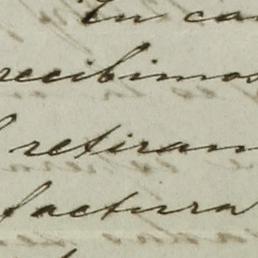 En ca
recibimos
retiram
factura